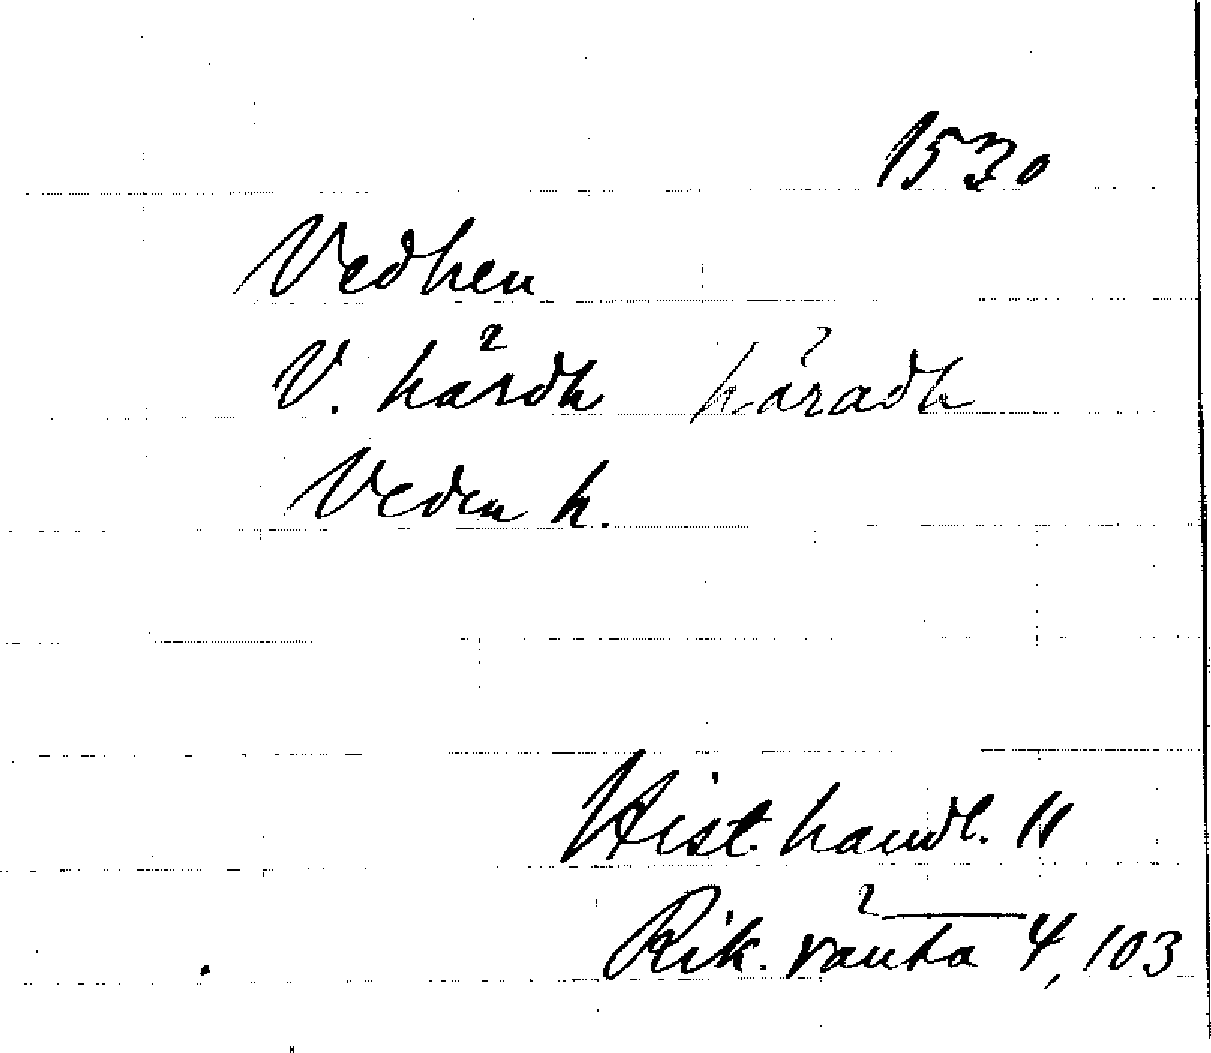 1530
Vedhen
V. härdh häradh
Veden h.
Hist. handl. 11
Rik. ränta 4, 103